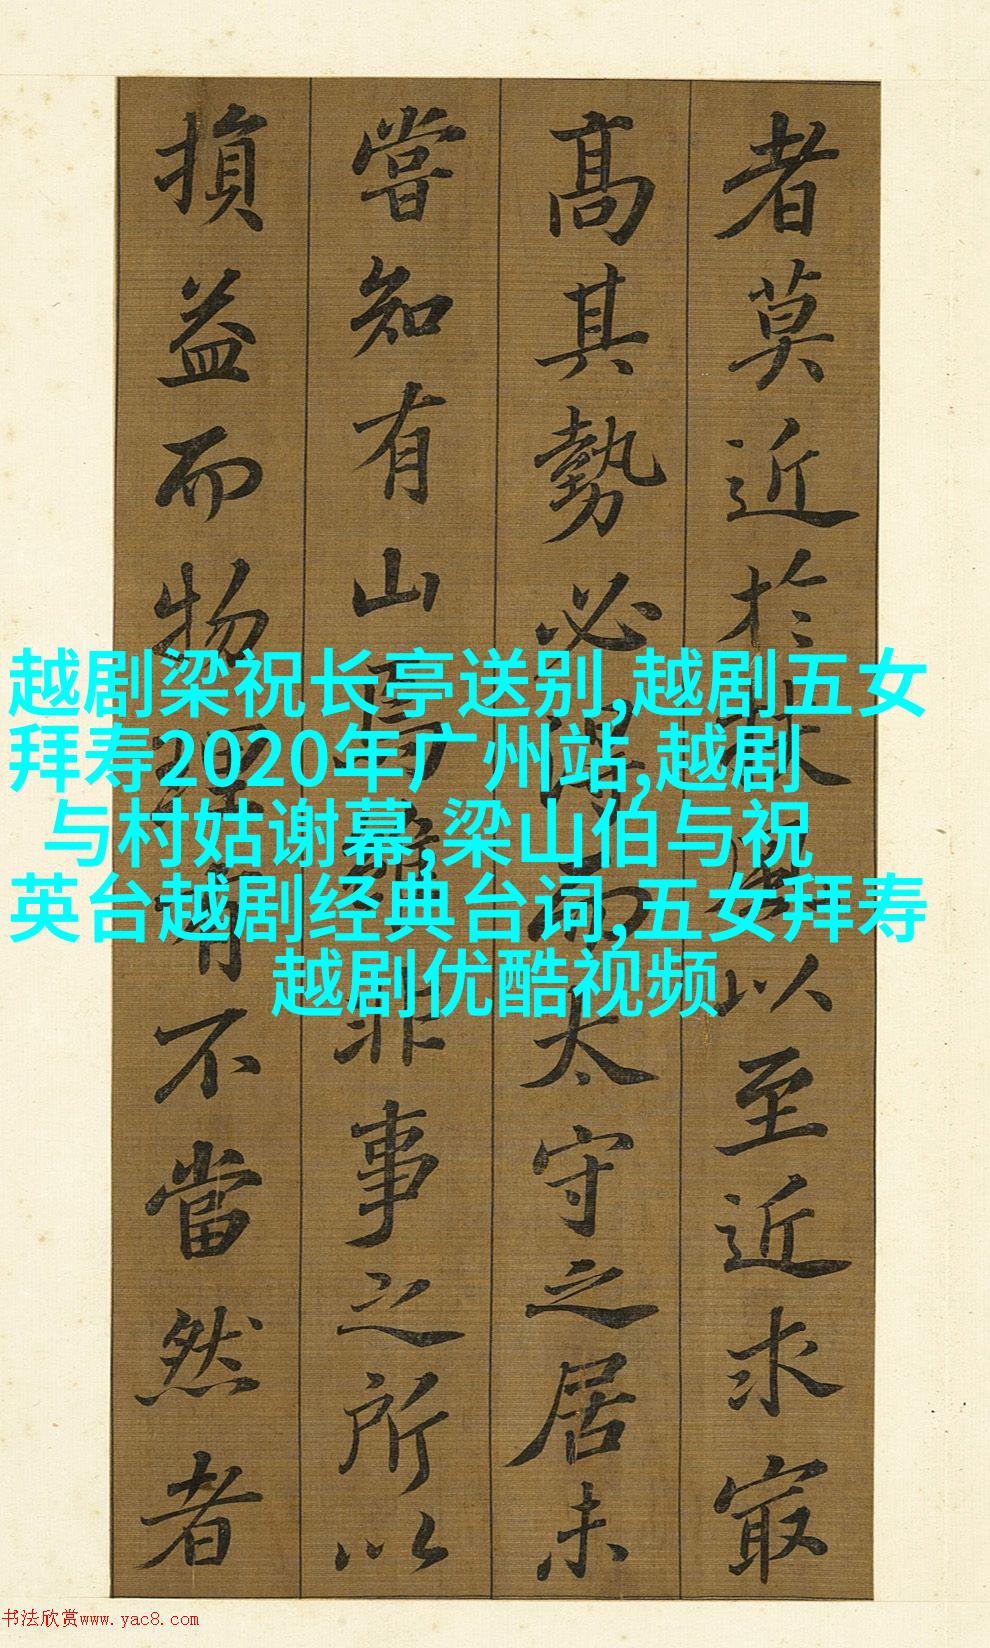 者莫近於以至近求㝡
高其勢必得而太守之居未
嘗知有山焉雖非事之所以
損益而物理有不當然者
越剧梁祝长亭送别,越剧五女
拜寿2020年广州站,越剧
与村姑谢幕,梁山伯与祝
英台越剧经典台词,五女拜寿
越剧优酷视频
书法欣赏www.yac8.com